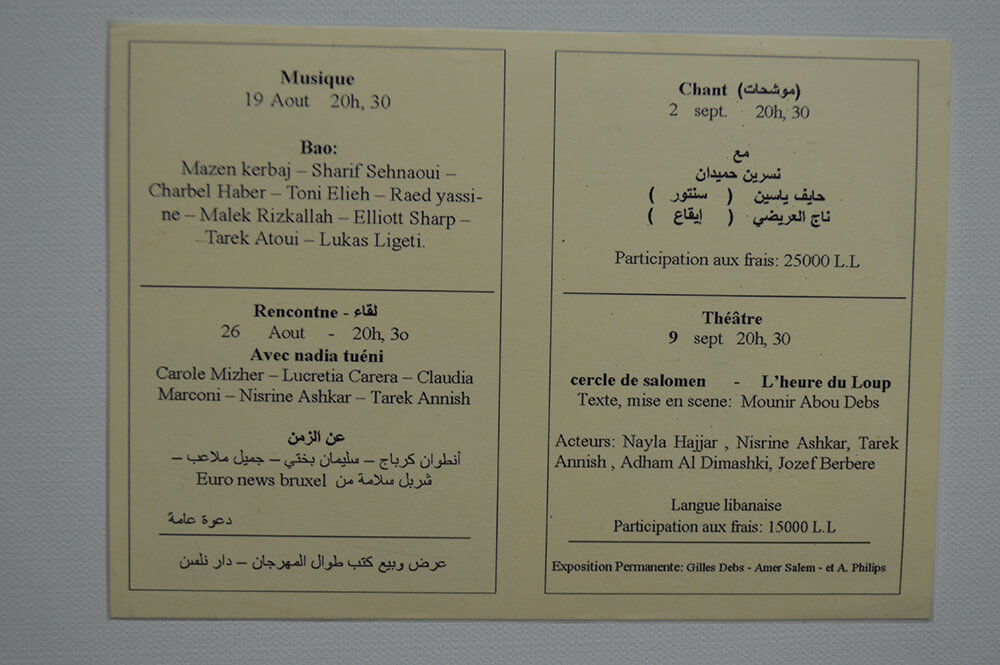 Musique
19 Aout 20h, 30
Bao:
Mazen kerbaj – Sharif Sehnaoui –
Charbel Haber – Toni Elieh – Raed yassi-
ne – Malek Rizkallah – Elliott Sharp –
Tarek Atoui – Lukas Ligeti.
Rencontne - لقاء
26 Aout - 20h, 3o
Avec nadia tuéni
Carole Mizher – Lucretia Carera – Claudia
Marconi – Nisrine Ashkar – Tarek Annish
عن الزمن
أنطوان كرباج – سليمان بختي – جميل ملاعب –
شربل سلامة من Euro news bruxel
دعوة عامة
عرض وبيع كتب طوال المهرجان – دار نلسن
Chant (موشحات)
2 sept. 20h, 30
مع
نسرين حميدان
حايف ياسين ( سنتور )
ناج العريضي ( إيقاع )
Participation aux frais: 25000 L.L
Théâtre
9 sept 20h, 30
cercle de salomen - L'heure du Loup
Texte, mise en scene: Mounir Abou Debs
Acteurs: Nayla Hajjar , Nisrine Ashkar, Tarek
Annish , Adham Al Dimashki, Jozef Berbere
Langue libanaise
Participation aux frais: 15000 L.L
Exposition Permanente: Gilles Debs - Amer Salem - et A. Philips